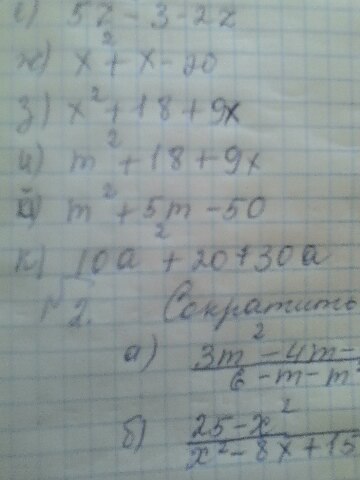 е) 5z - 3 - 2z
ж) x² + x - 90
з) x² + 18 + 9x
и) m² + 18 + 9x
й) m² + 5m - 50
к) 10a² + 20 + 30a
№2. Сократите
а) 3m² - 4m - / 6 - m - m²
б) 25 - x² / x² - 8x + 15